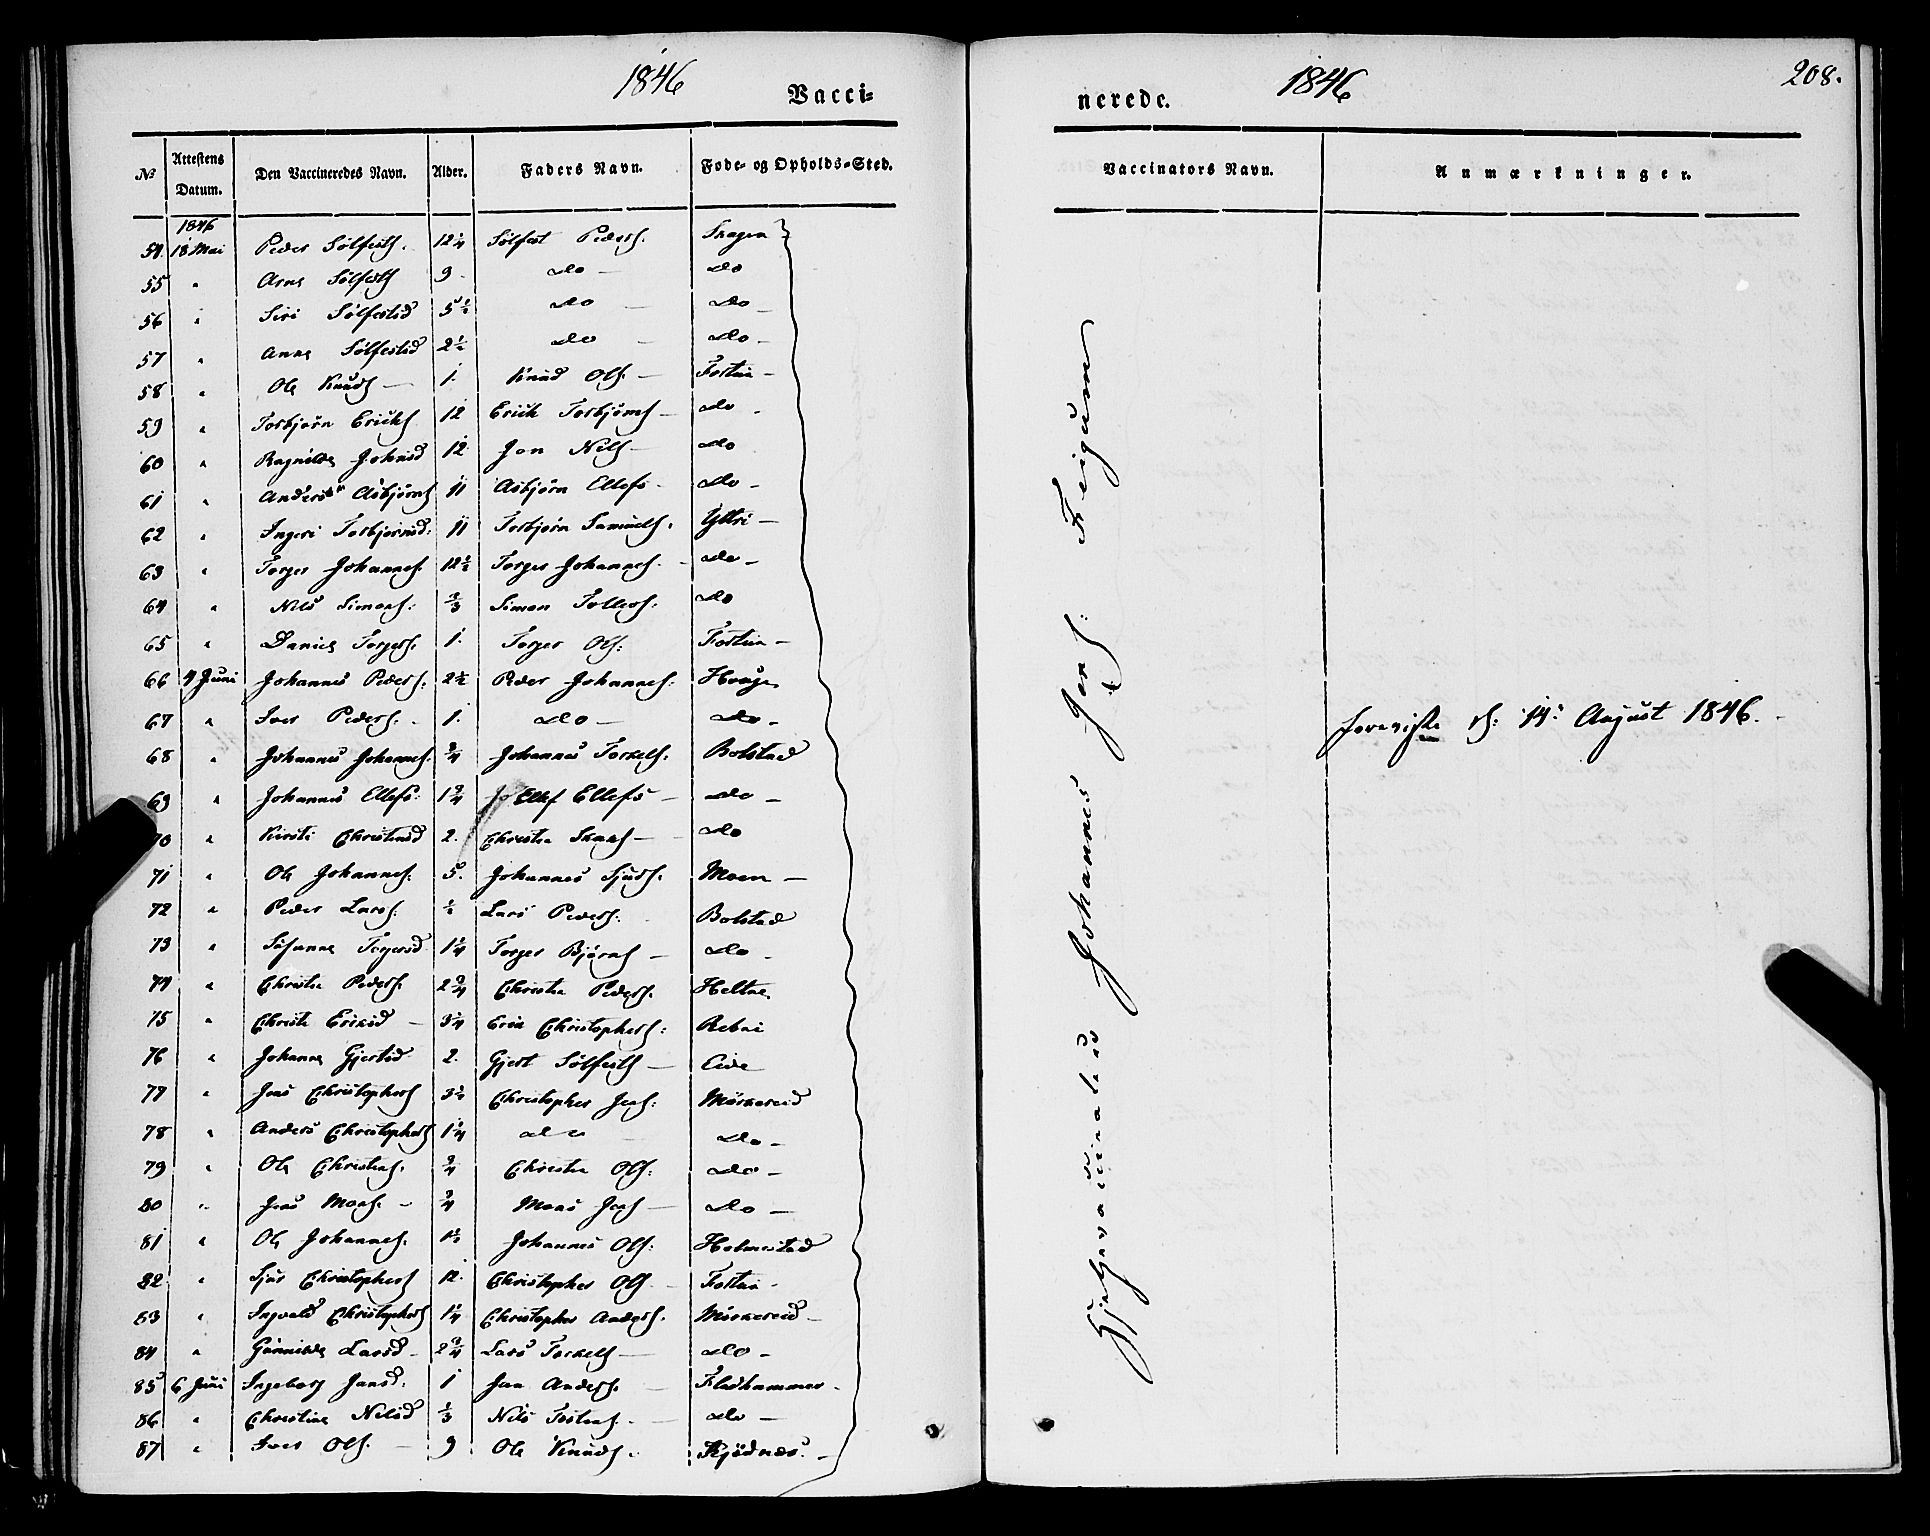 1846
Vacci-
№ Attestens Datum. Den Vaccineredes Navn. Alder. Faders Navn. Føde- og Opholds-Sted.
1846
54. 18 Mai Peder Sølfests. 12 1/4 Sølfest Peders. Skagen
55 " Arne Sølfests 9 - do - do
56 " Siri Sølfestsd 5 1/2 do - do -
57 " Anne Sølfestsd 2 1/2 do - do -
58 " Ole Knuds - 1. Knud Ols. - Fortun -
59 " Torbjørn Ericks 12 Erick Torbjørns - do -
60 " Ragnilde Johnsd 12 Jon Nils - do
61 " Anders Asbjørns 11 Asbjørn Ellefs - do -
62 " Ingeri Torbjørnsd: 11 Torbjørn Samuels. Yttri -
63 " Torger Johannes. 12 1/2 Torger Johannes. - do -
64 " Nils Simons: 2/3 Simon Tollefs: do
65 " Daniel Torgers. 1. Torger Ols: Fortun -
66 4 Juni Johannes Peders. 2 1/2 Peder Johannes: Houge
67 " Iver Peders. - 1. do - do -
68 " Johannes Johannes. 3/4 Johannes Torkels. Bolstad
69 " Johannes Ellefs: 1 3/4 Ellef Ellefs - do -
70 " Kirsti Christensd 2. Christen - do
71 " Ole Johannes. 5. Johannes Sjurs. Moen -
72 " Peder Lars. 1/2 Lars Peders. Bolstad
73 " Susanne Torgersd 1 1/4 Torger Bjørns - do -
74 " Christen Peders. 2 3/4 Christen Peders. Heltne
75 " Christi Ericsd - 3 1/4 Eric Christophers: Rebni
76 " Johanne Gjertsd 2. Gjert Sølfests - Eide
77 " Jens Christophers 3 1/2 Christopher Jens: Mørkereid
78 " Anders Christophers 1 1/4 do do -
79 " Ole Christens. 3/4 Christen Ols: do -
80 " Jens Mons. - 3/4 Mons Jens - do -
81 " Ole Johannes. 1 1/2 Johannes Ols: Holmestad
82 " Sjur Christophers 12. Christopher Ols - Fortun -
83 " Ingvald Christophers 1 1/4 Christopher Anders. Mørkereid -
84 " Gunnilde Larsd - 2 3/4 Lars Torkels - do -
85 6 Juni Ingeborg Jansd: 1 Jan Anders. - Fladhammer -
86 " Christine Nilsd 1/3 Nils Tostens. - do -
87 " Iver Ols. - 9 Ole Knuds. Kjødnæs. -
nerede.
1846
208.
Vaccinators Navn. Anmærkninger.
Hjelpevaccinateur Johannes Jens: Feigum
foreviste d: 14: August 1846. -